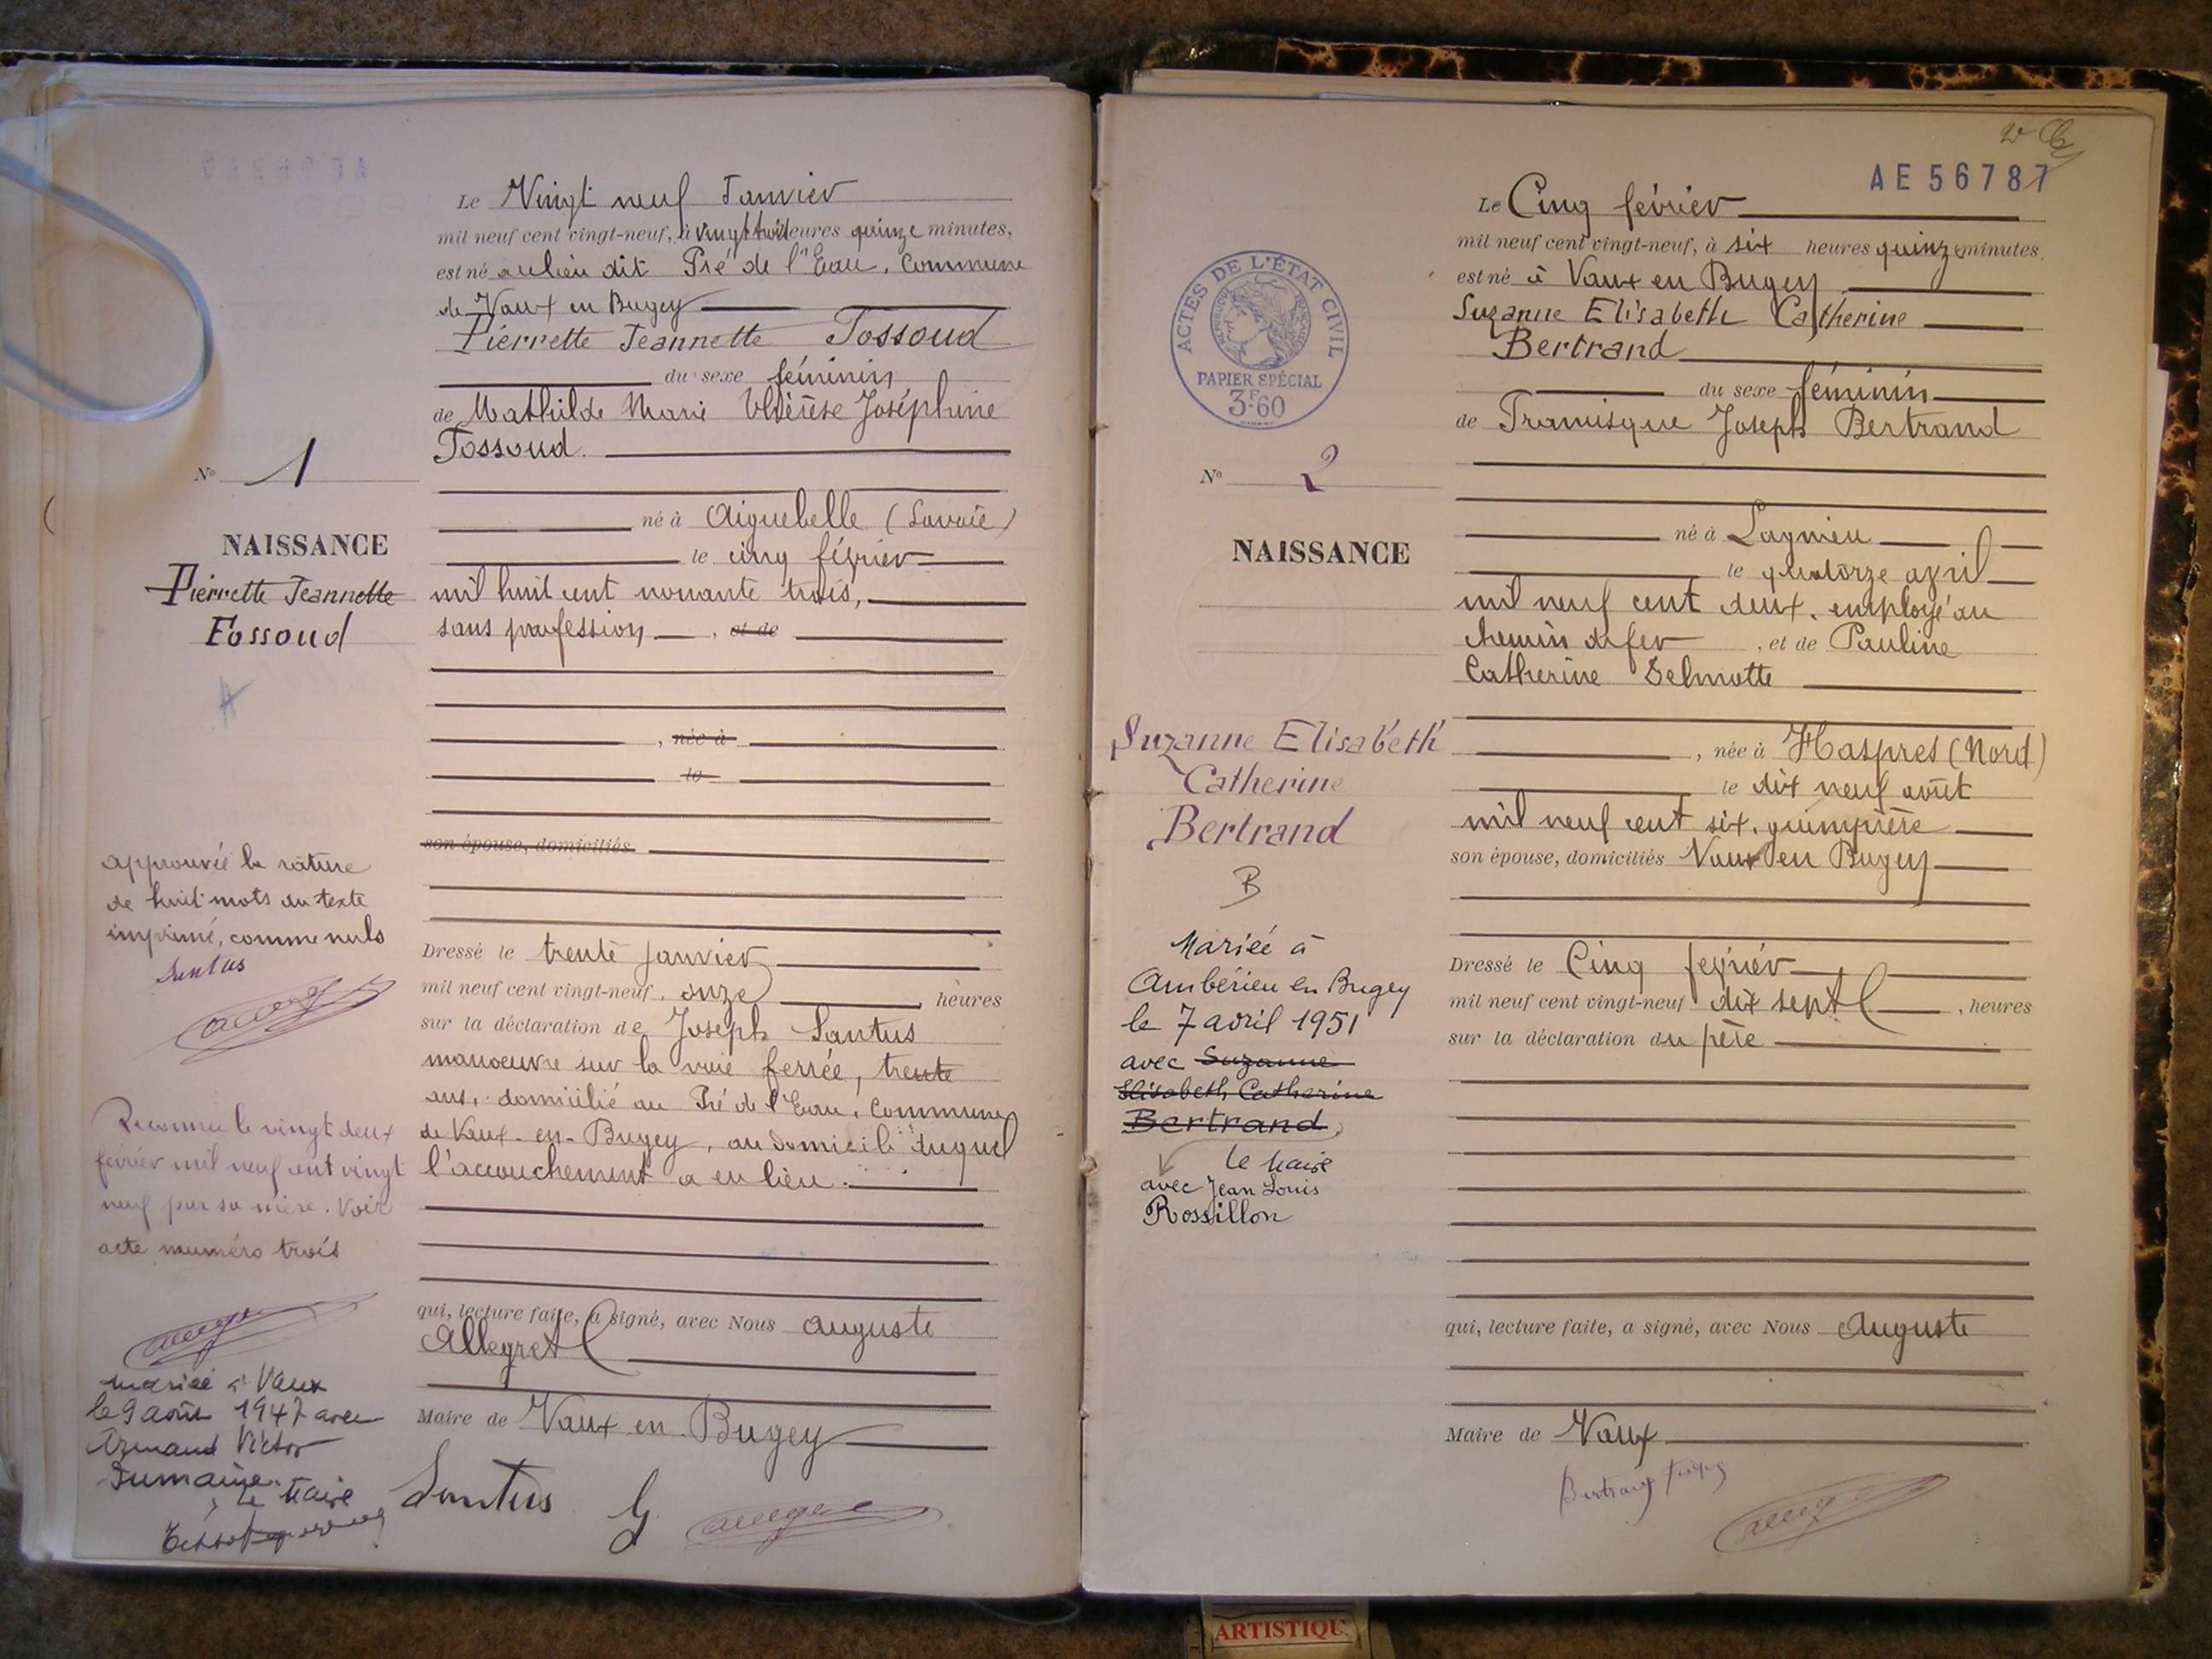 Le Vingt neuf Janvier
mil neuf cent vingt-neuf, à vingt trois heures quinze minutes,
est né au lieu dit Pré de l'Eau, Commune
de Vaux en Bugey
Pierrette Jeannette Fossoud
du sexe féminin
de Mathilde Marie Thérèse Joséphine
Fossoud.
né à Aiguebelle (Savoie)
le cinq février
mil huit cent nonante trois,
sans profession, et de
, née à
le
son épouse, domiciliés
Dressé le trente janvier
mil neuf cent vingt-neuf, onze heures
sur la déclaration de Joseph Santus
manoeuvre sur la voie ferrée, trente
ans, domicilié au Pré de l'Eau, Commune
de Vaux-en-Bugey, au domicile duquel
l'accouchement a eu lieu.
qui, lecture faite, a signé, avec Nous Auguste
Allegret
Maire de Vaux en Bugey
Santus
N° 1
NAISSANCE
Pierrette Jeannette
Fossoud
A
approuvée la rature
de huit mots du texte
imprimé, comme nuls
Santus
Reconnue le vingt deux
février mil neuf cent vingt
neuf par sa mère. Voir
acte numéro trois
mariée à Vaux
le 9 août 1947 avec
Armand Victor
Dumaine.
Le Maire
AE 56787
Le Cinq février
mil neuf cent vingt-neuf, à six heures quinze minutes,
est né à Vaux en Bugey
Suzanne Elisabeth Catherine
Bertrand
du sexe féminin
de Franisque Joseph Bertrand
né à Lagnieu
le quatorze avril
mil neuf cent deux, employé au
chemin de fer, et de Pauline
Catherine Delmotte
, née à Haspres (Nord)
le dix neuf août
mil neuf cent six, guimpière
son épouse, domiciliés Vaux en Bugey
Dressé le Cinq février
mil neuf cent vingt-neuf dix sept, heures
sur la déclaration du père
qui, lecture faite, a signé, avec Nous Auguste
Maire de Vaux
Bertrand
ACTES DE L'ÉTAT CIVIL
RÉPUBLIQUE FRANÇAISE
PAPIER SPÉCIAL
3F.60
N° 2
NAISSANCE
Suzanne Elisabeth
Catherine
Bertrand
B
Mariée à
Ambérieu en Bugey
le 7 avril 1951
avec Suzanne
Elisabeth Catherine
Bertrand.
Le Maire
avec Jean Louis
Rossillon
ARTISTIQU